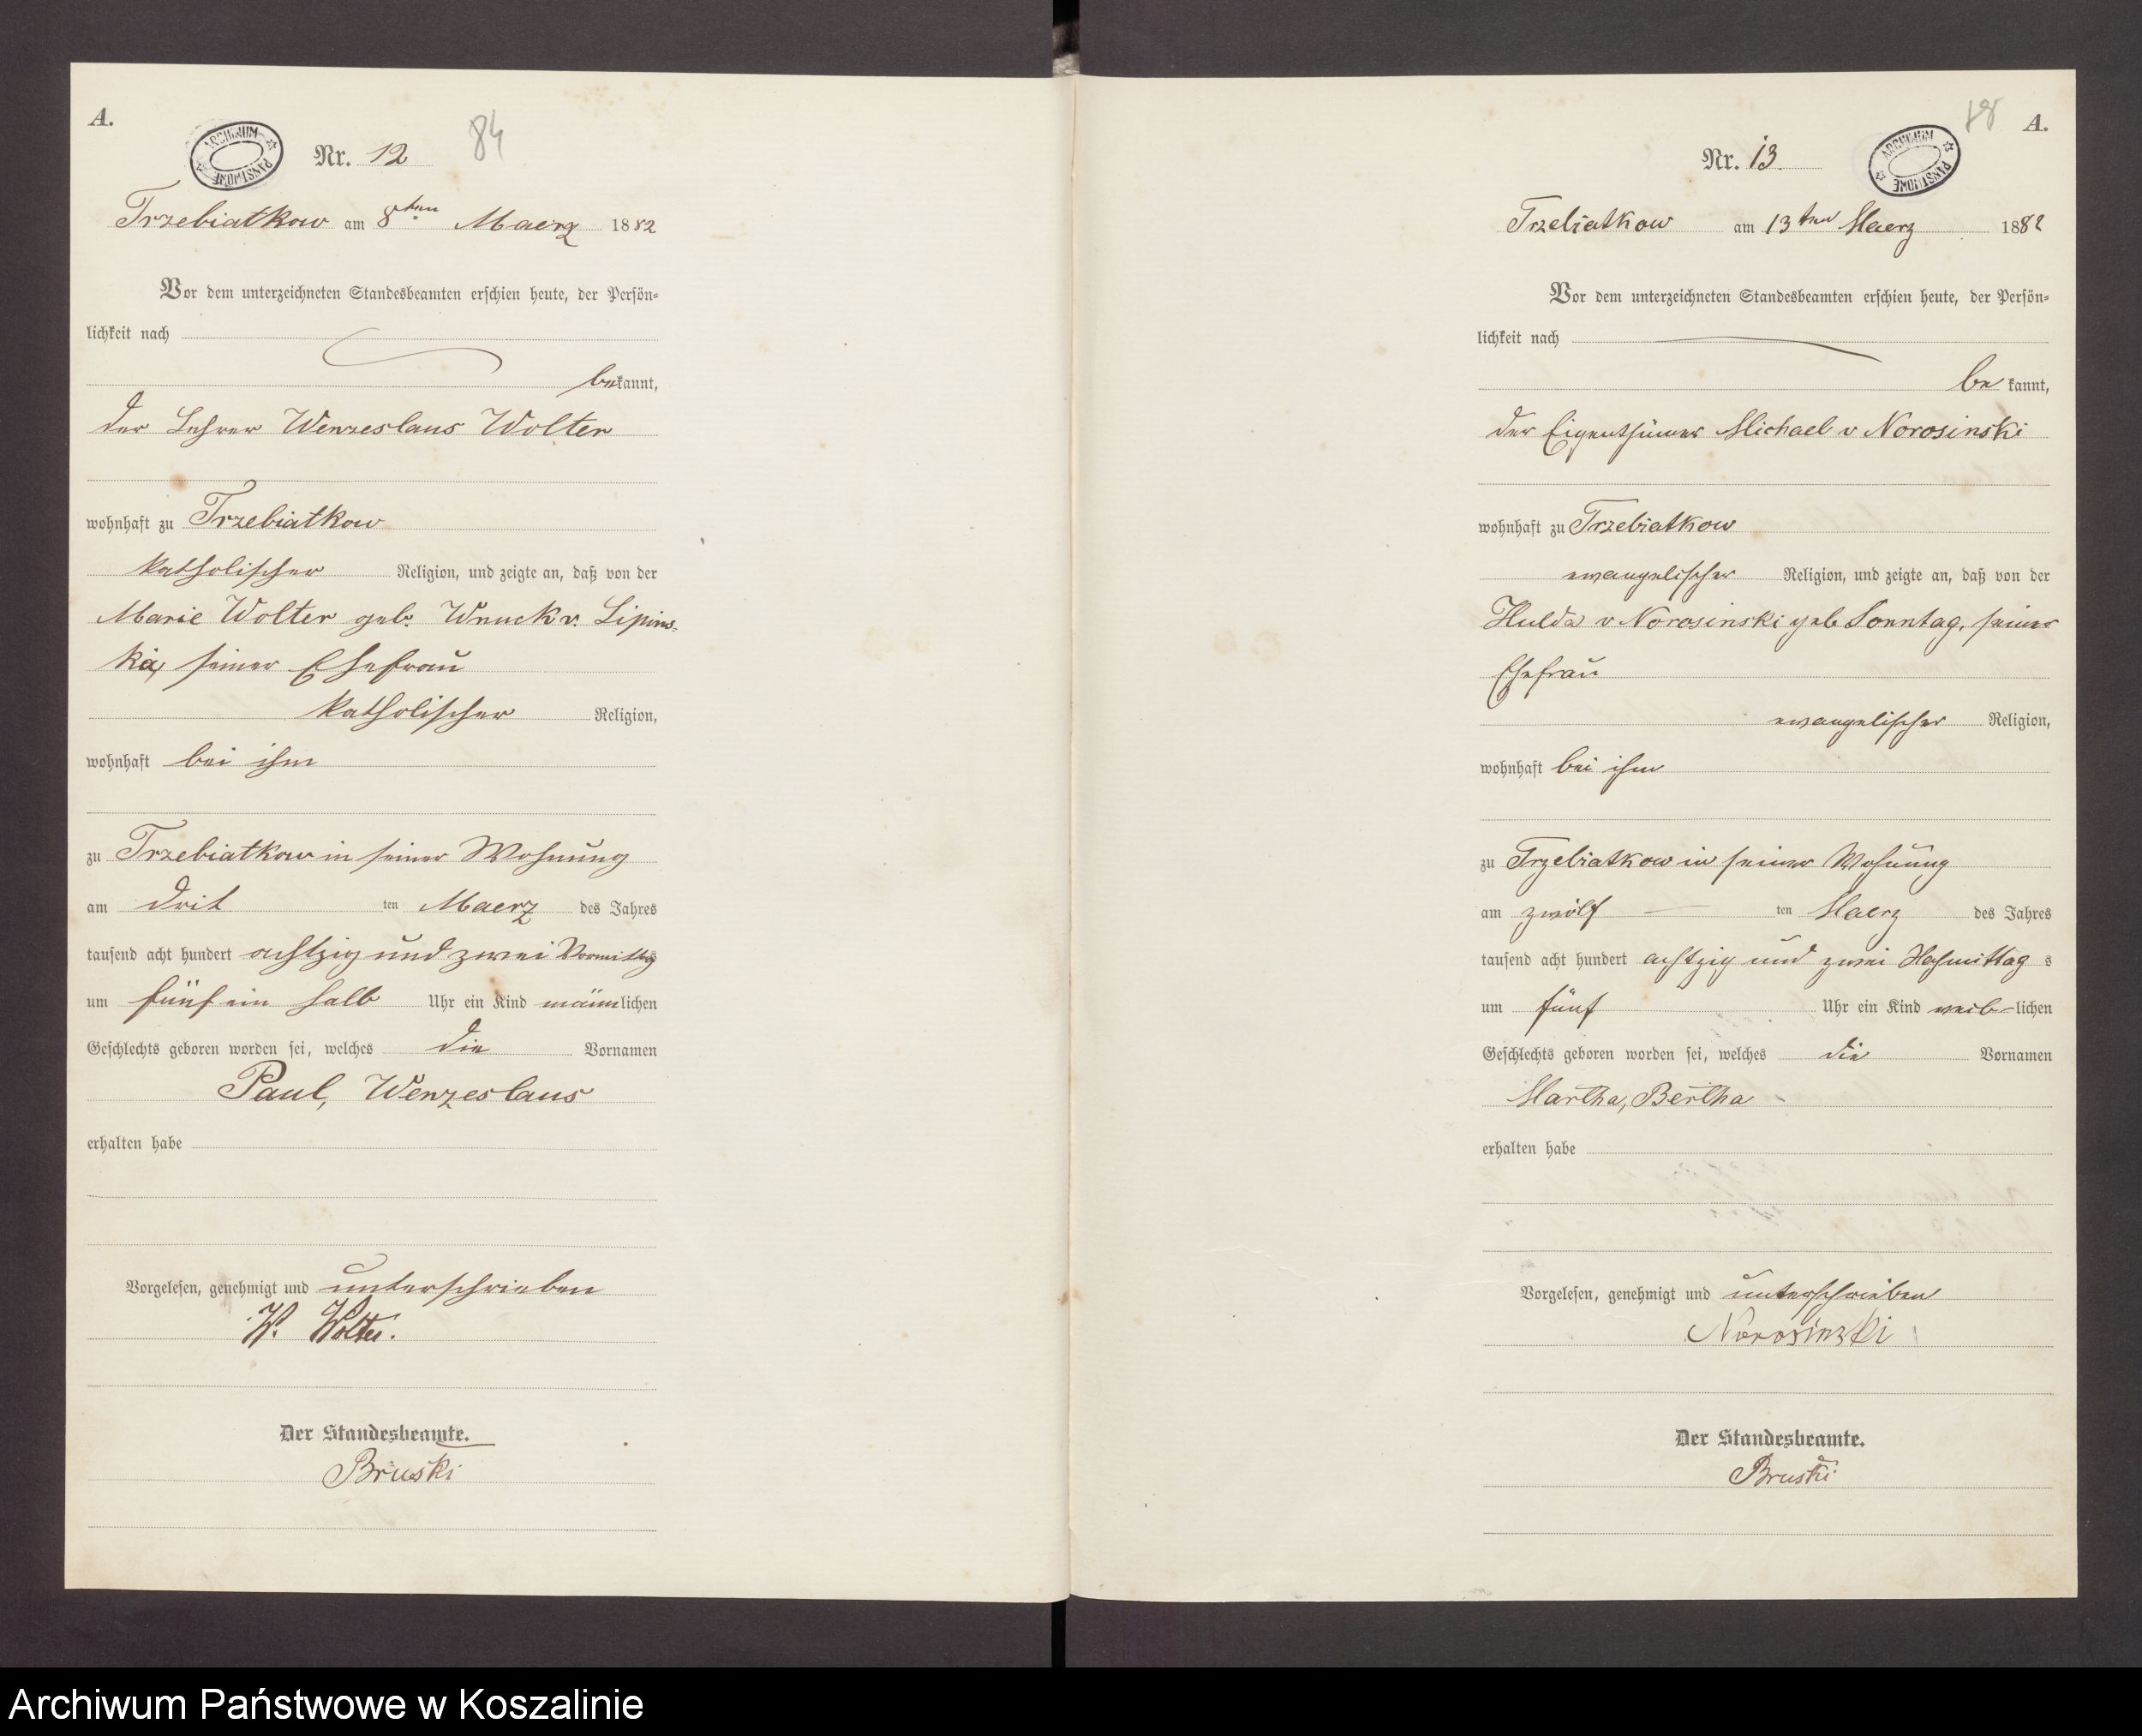 A.
ARCHIWUM PAŃSTWOWE
Nr. 12
84
Trzebiatkow am 8ten Maerz 1882
Vor dem unterzeichneten Standesbeamten erschien heute, der Persön=
lichkeit nach
bekannt,
der Lehrer Wenzeslaus Wolter
wohnhaft zu Trzebiatkow
katholischer Religion, und zeigte an, daß von der
Marie Wolter geb. Wnuck v. Lipins=
ka, seiner Ehefrau
katholischer Religion,
wohnhaft bei ihm
zu Trzebiatkow in seiner Wohnung
am drit ten Maerz des Jahres
tausend acht hundert achtzig und zwei Vormittags
um fünf ein halb Uhr ein Kind männlichen
Geschlechts geboren worden sei, welches die Vornamen
Paul, Wenzeslaus
erhalten habe
Vorgelesen, genehmigt und unterschrieben
W. Wolter.
Der Standesbeamte.
Bruski
18
A.
Nr. 13.
ARCHIWUM PAŃSTWOWE
Trzebiatkow am 13ten Maerz 1882
Vor dem unterzeichneten Standesbeamten erschien heute, der Persön=
lichkeit nach
be kannt,
der Eigenthümer Michael v Norosinski
wohnhaft zu Trzebiatkow
evangelischer Religion, und zeigte an, daß von der
Hulda v Norosinski geb Sonntag, seiner
Ehefrau
evangelischer Religion,
wohnhaft bei ihm
zu Trzebiatkow in seiner Wohnung
am zwölf ten Maerz des Jahres
tausend acht hundert achtzig und zwei Nachmittag s
um fünf Uhr ein Kind weib-lichen
Geschlechts geboren worden sei, welches die Vornamen
Martha, Bertha
erhalten habe
Vorgelesen, genehmigt und unterschrieben
Norosinski
Der Standesbeamte.
Bruski
Archiwum Państwowe w Koszalinie